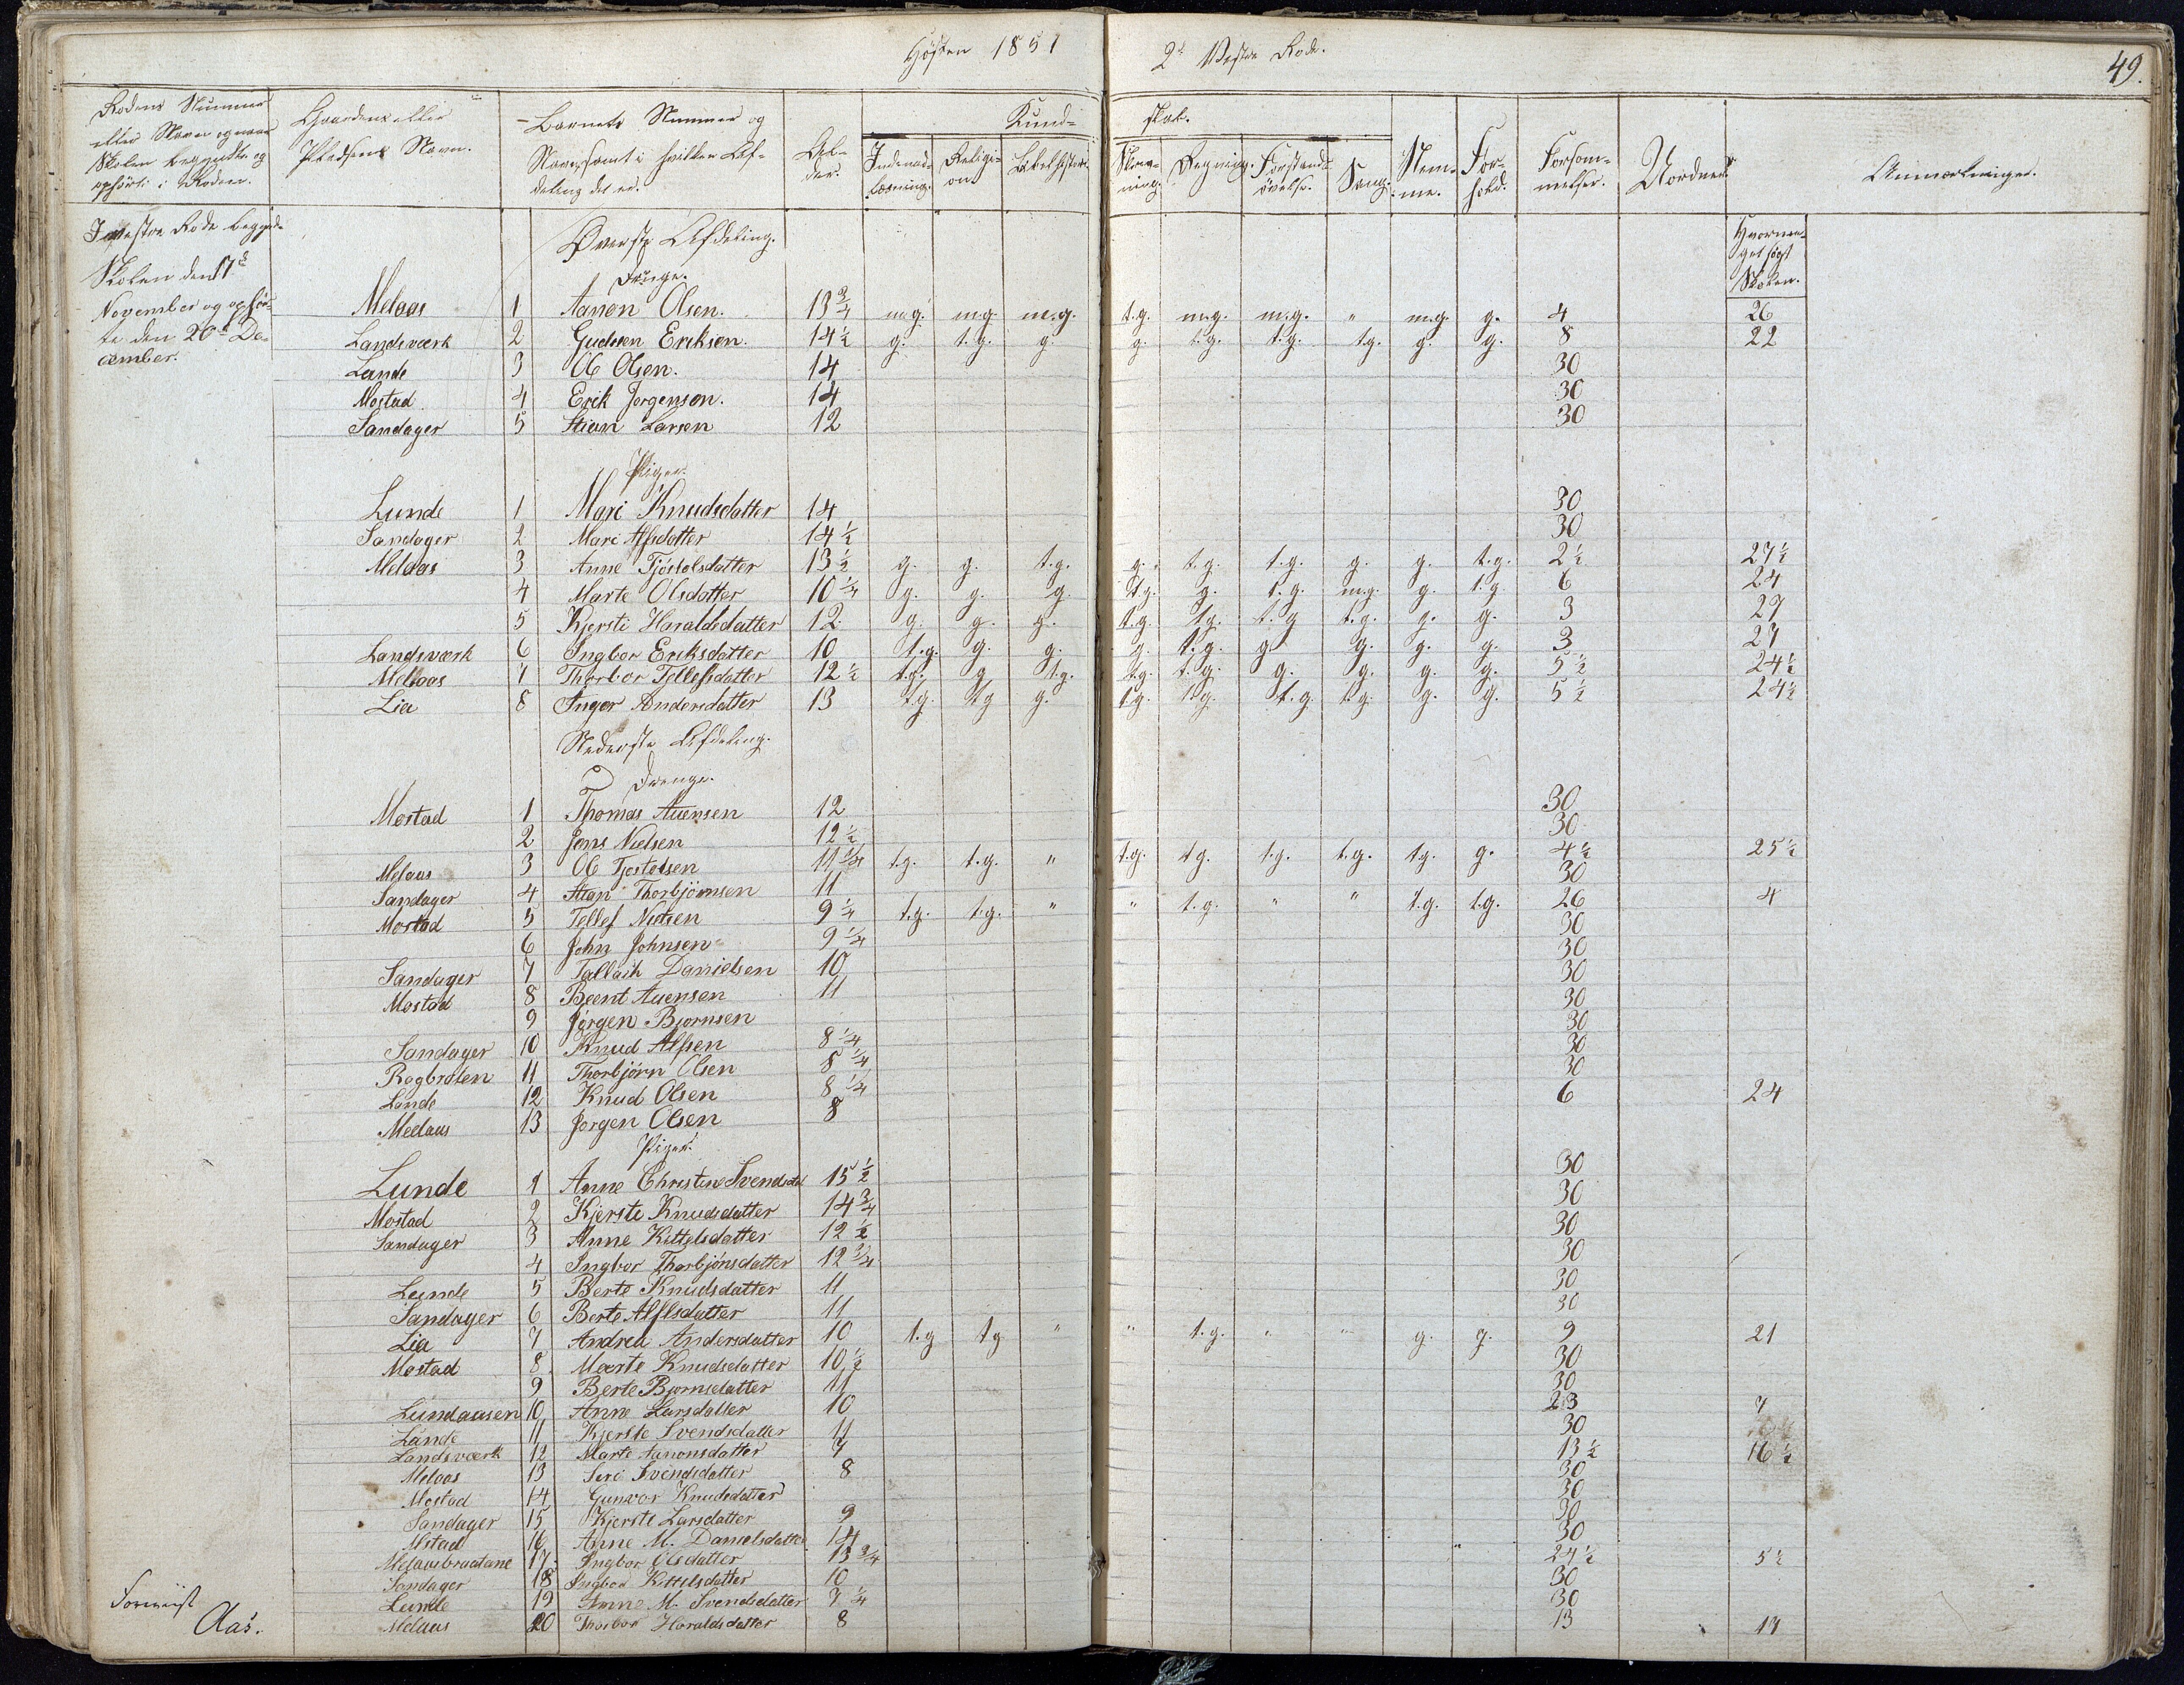 Høsten 1851 2de Vestre Rode. 49.
Rodens Nummer eller Navn og naar Skolen begyndte og ophörte i Roden. Gaardens eller Pladsens Navn. Barnets Nummer og Navn, samt i hvilken Afdeling det er. Alder. Kundskab. Indenadlæsning. Religion. Bibelhistorie. Skrivning. Regning. Forstandsøvelse. Sang. Nemme. Forhold. Forsømmelser. Uordner. Anmærkninger.
I vestre Rode begynd- Øverste Afdeling. Hvormeget søgt Skolen.
Skolen den 17de Drenge.
November og ophør- Melaas 1 Aanon Olsen. 13 3/4 m.g. m.g. m.g. t.g. m.g. m.g. " m.g. g. 4 26
te den 20de De- Landsværk 2 Gudmen Eriksen. 14 1/2 g. t.g. g. g. t.g. t.g. t.g. g. g. 8 22
cember. Lunde 3 Ole Olsen. 14 30
Mostad 4 Erik Jørgensen. 14 30
Sandager 5 Stian Larsen 12 30
Piger.
Lunde 1 Mari Knudsdatter 14 30
Sandager 2 Mari Alfsdatter 14 1/2 30
Melaas 3 Anne Tjöstolsdatter 13 1/2 g. g. t.g. g. t.g. t.g. g. g. t.g. 2 1/2 27 1/2
4 Marte Olsdatter 10 1/4 g. g. g. t.g. g. t.g. m.g. g. t.g. 6 24
5 Kjersti Haraldsdatter 12 g. g. g. t.g. t.g. t.g. t.g. g. g. 3 27
Landsværk 6 Ingbor Eriksdatter 10 t.g. g. g. g. t.g. g. g. g. g. 3 27
Melaas 7 Thorbor Tellefsdatter 12 1/2 t.g. g. t.g. t.g. t.g. g. g. g. g. 5 1/2 24 1/2
Lia 8 Inger Andersdatter 13 t.g. t.g. g. t.g. t.g. t.g. t.g. g. g. 5 1/2 24 1/2
Nederste Afdeling.
Drenge.
Mostad 1 Thomas Auensen 12 30
2 Jens Nielsen 12 1/2 30
Melaas 3 Ole Tjostolsen 11 1/4 t.g. t.g. " t.g. t.g. t.g. t.g. t.g. g. 4 1/2 25 1/2
Sandager 4 Stian Thorbjörnsen 11 30
Mostad 5 Tellef Nielsen 9 1/4 t.g. t.g. " " t.g. " " t.g. t.g. 26 4
6 John Johnsen 9 1/4 30
Sandager 7 Tallaih Danielsen 10 30
Mostad 8 Beent Auensen 11 30
9 Jörgen Bjornsen 30
Sandager 10 Knud Alfsen 8 1/4 30
Rogbraten 11 Thorbjörn Olsen 8 1/4 30
Lunde 12 Knud Olsen 8 1/4 30
Melaas 13 Jorgen Olsen 8 6 24
Piger.
Lunde 1 Anne Christine Svendsdat 15 1/2 30
Mostad 2 Kjersti Knudsdatter 14 3/4 30
Sandager 3 Anne Kittelsdatter 12 1/2 30
4 Ingbor Thorbjönsdatter 12 3/4 30
Lunde 5 Berte Knudsdatter 11 30
Sandager 6 Berte Alfsdatter 11 30
Lia 7 Andrea Andersdatter 10 t.g t.g " " t.g. " " g. g. 9 21
Mostad 8 Maerte Knudsdatter 10 1/2 30
9 Berte Bjornsdatter 11 30
Lundaasen 10 Anne Larsdatter 10 23 7
Lunde 11 Kjerste Svendsdatter 11 30
Landsværk 12 Marte Aanonsdatter 7 13 1/2 16 1/2
Melaas 13 Seri Svendsdatter 8 30
Mostad 14 Gunvor Knudsdatter 30
Sandager 15 Kjerste Larsdatter 9 30
Mostad 16 Anne M. Danielsdatter 14 30
Melaasbraatane 17 Ingbor Olsdatter 13 3/4 24 1/2 5 1/2
Sandager 18 Ingbor Kittelsdatter 10 30
Lunde 19 Anne M. Svendsdatter 7 1/4 30
Melaas 20 Thorbor Haraldsdatter 8 13 17
Forevist
Aas.